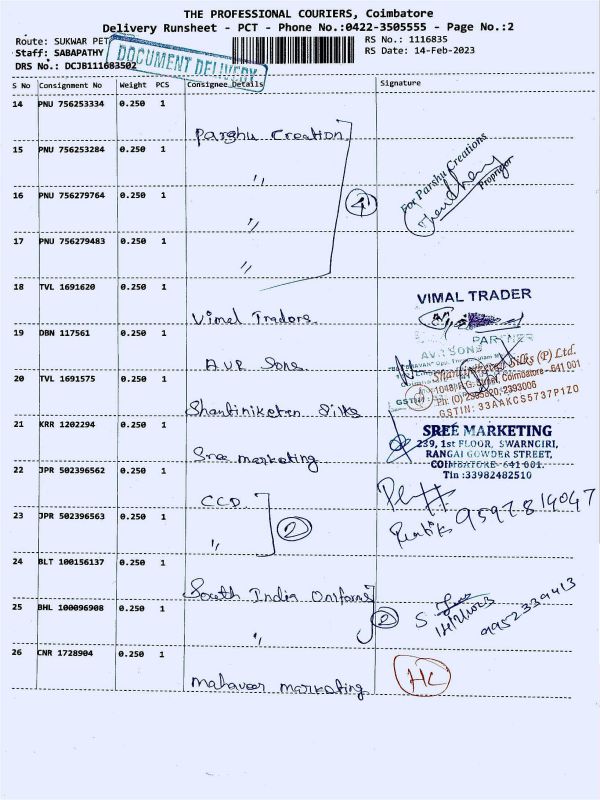 THE PROFESSIONAL COURIERS, Coimbatore
Delivery Runsheet - PCT - Phone No.:0422-3505555 - Page No.:2
Route: SUKWAR PET
RS No.: 1116835
Staff: SABAPATHY
RS Date: 14-Feb-2023
DRS No.: DCJB111683502
DOCUMENT DELIVERY
S No Consignment No Weight PCS Consignee Details Signature
14 PNU 756253334 0.250 1
Parshu Creation
15 PNU 756253284 0.250 1
"
For Parshu Creations
Proprietor
16 PNU 756279764 0.250 1
"
4
17 PNU 756279483 0.250 1
"
18 TVL 1691620 0.250 1
Vimal Traders.
VIMAL TRADER
PARTNER
19 DBN 117561 0.250 1
AVR Sons
AVR SONS
20 TVL 1691575 0.250 1
Shantiniketan Silks
Silks (P) Ltd.
Coimbatore - 641 001
Ph: (0) 2395820, 2393006
GSTIN: 33AAKCS5737P1Z0
21 KRR 1202294 0.250 1
Sree marketing
SREE MARKETING
239, 1st FLOOR, SWARNGIRI,
RANGAI GOWDER STREET,
COIMBATORE - 641 001.
Tin :33982482510
22 JPR 502396562 0.250 1
CCD
23 JPR 502396563 0.250 1
"
2
9597814047
24 BLT 100156137 0.250 1
South India Uniforms
25 BHL 100096908 0.250 1
"
2
S
14/2/2023
9952339413
26 CNR 1728904 0.250 1
mahaveer marketing
HL